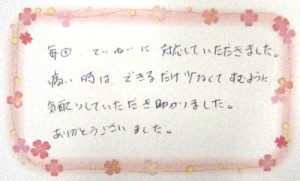 毎回、ていねいに対応していただきました。
痛い時は、できるだけ少なくてすむように
気配りしていただき助かりました。
ありがとうございました。